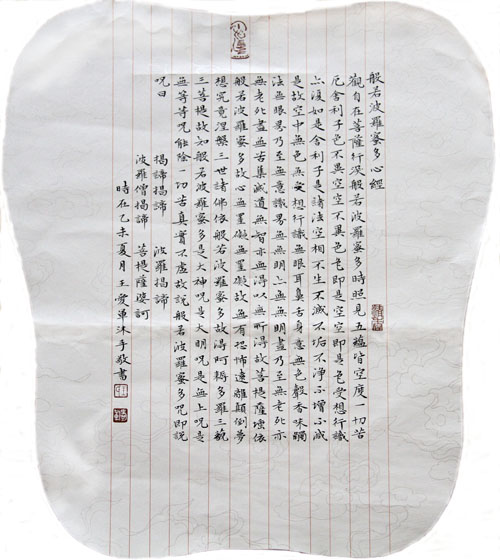 般若波羅蜜多心經
觀自在菩薩行深般若波羅蜜多時照見五蘊皆空度一切苦
厄舍利子色不異空空不異色色即是空空即是色受想行識
亦復如是舍利子是諸法空相不生不滅不垢不淨不增不減
是故空中無色無受想行識無眼耳鼻舌身意無色聲香味觸
法無眼界乃至無意識界無無明亦無無明盡乃至無老死亦
無老死盡無苦集滅道無智亦無得以無所得故菩提薩埵依
般若波羅蜜多故心無罣礙無罣礙故無有恐怖遠離顛倒夢
想究竟涅槃三世諸佛依般若波羅蜜多故得阿耨多羅三藐
三菩提故知般若波羅蜜多是大神咒是大明咒是無上咒是
無等等咒能除一切苦真實不虛故說般若波羅蜜多咒即說
咒曰
揭諦揭諦 波羅揭諦
波羅僧揭諦 菩提薩婆訶
時在乙未夏月王愛沐手敬書